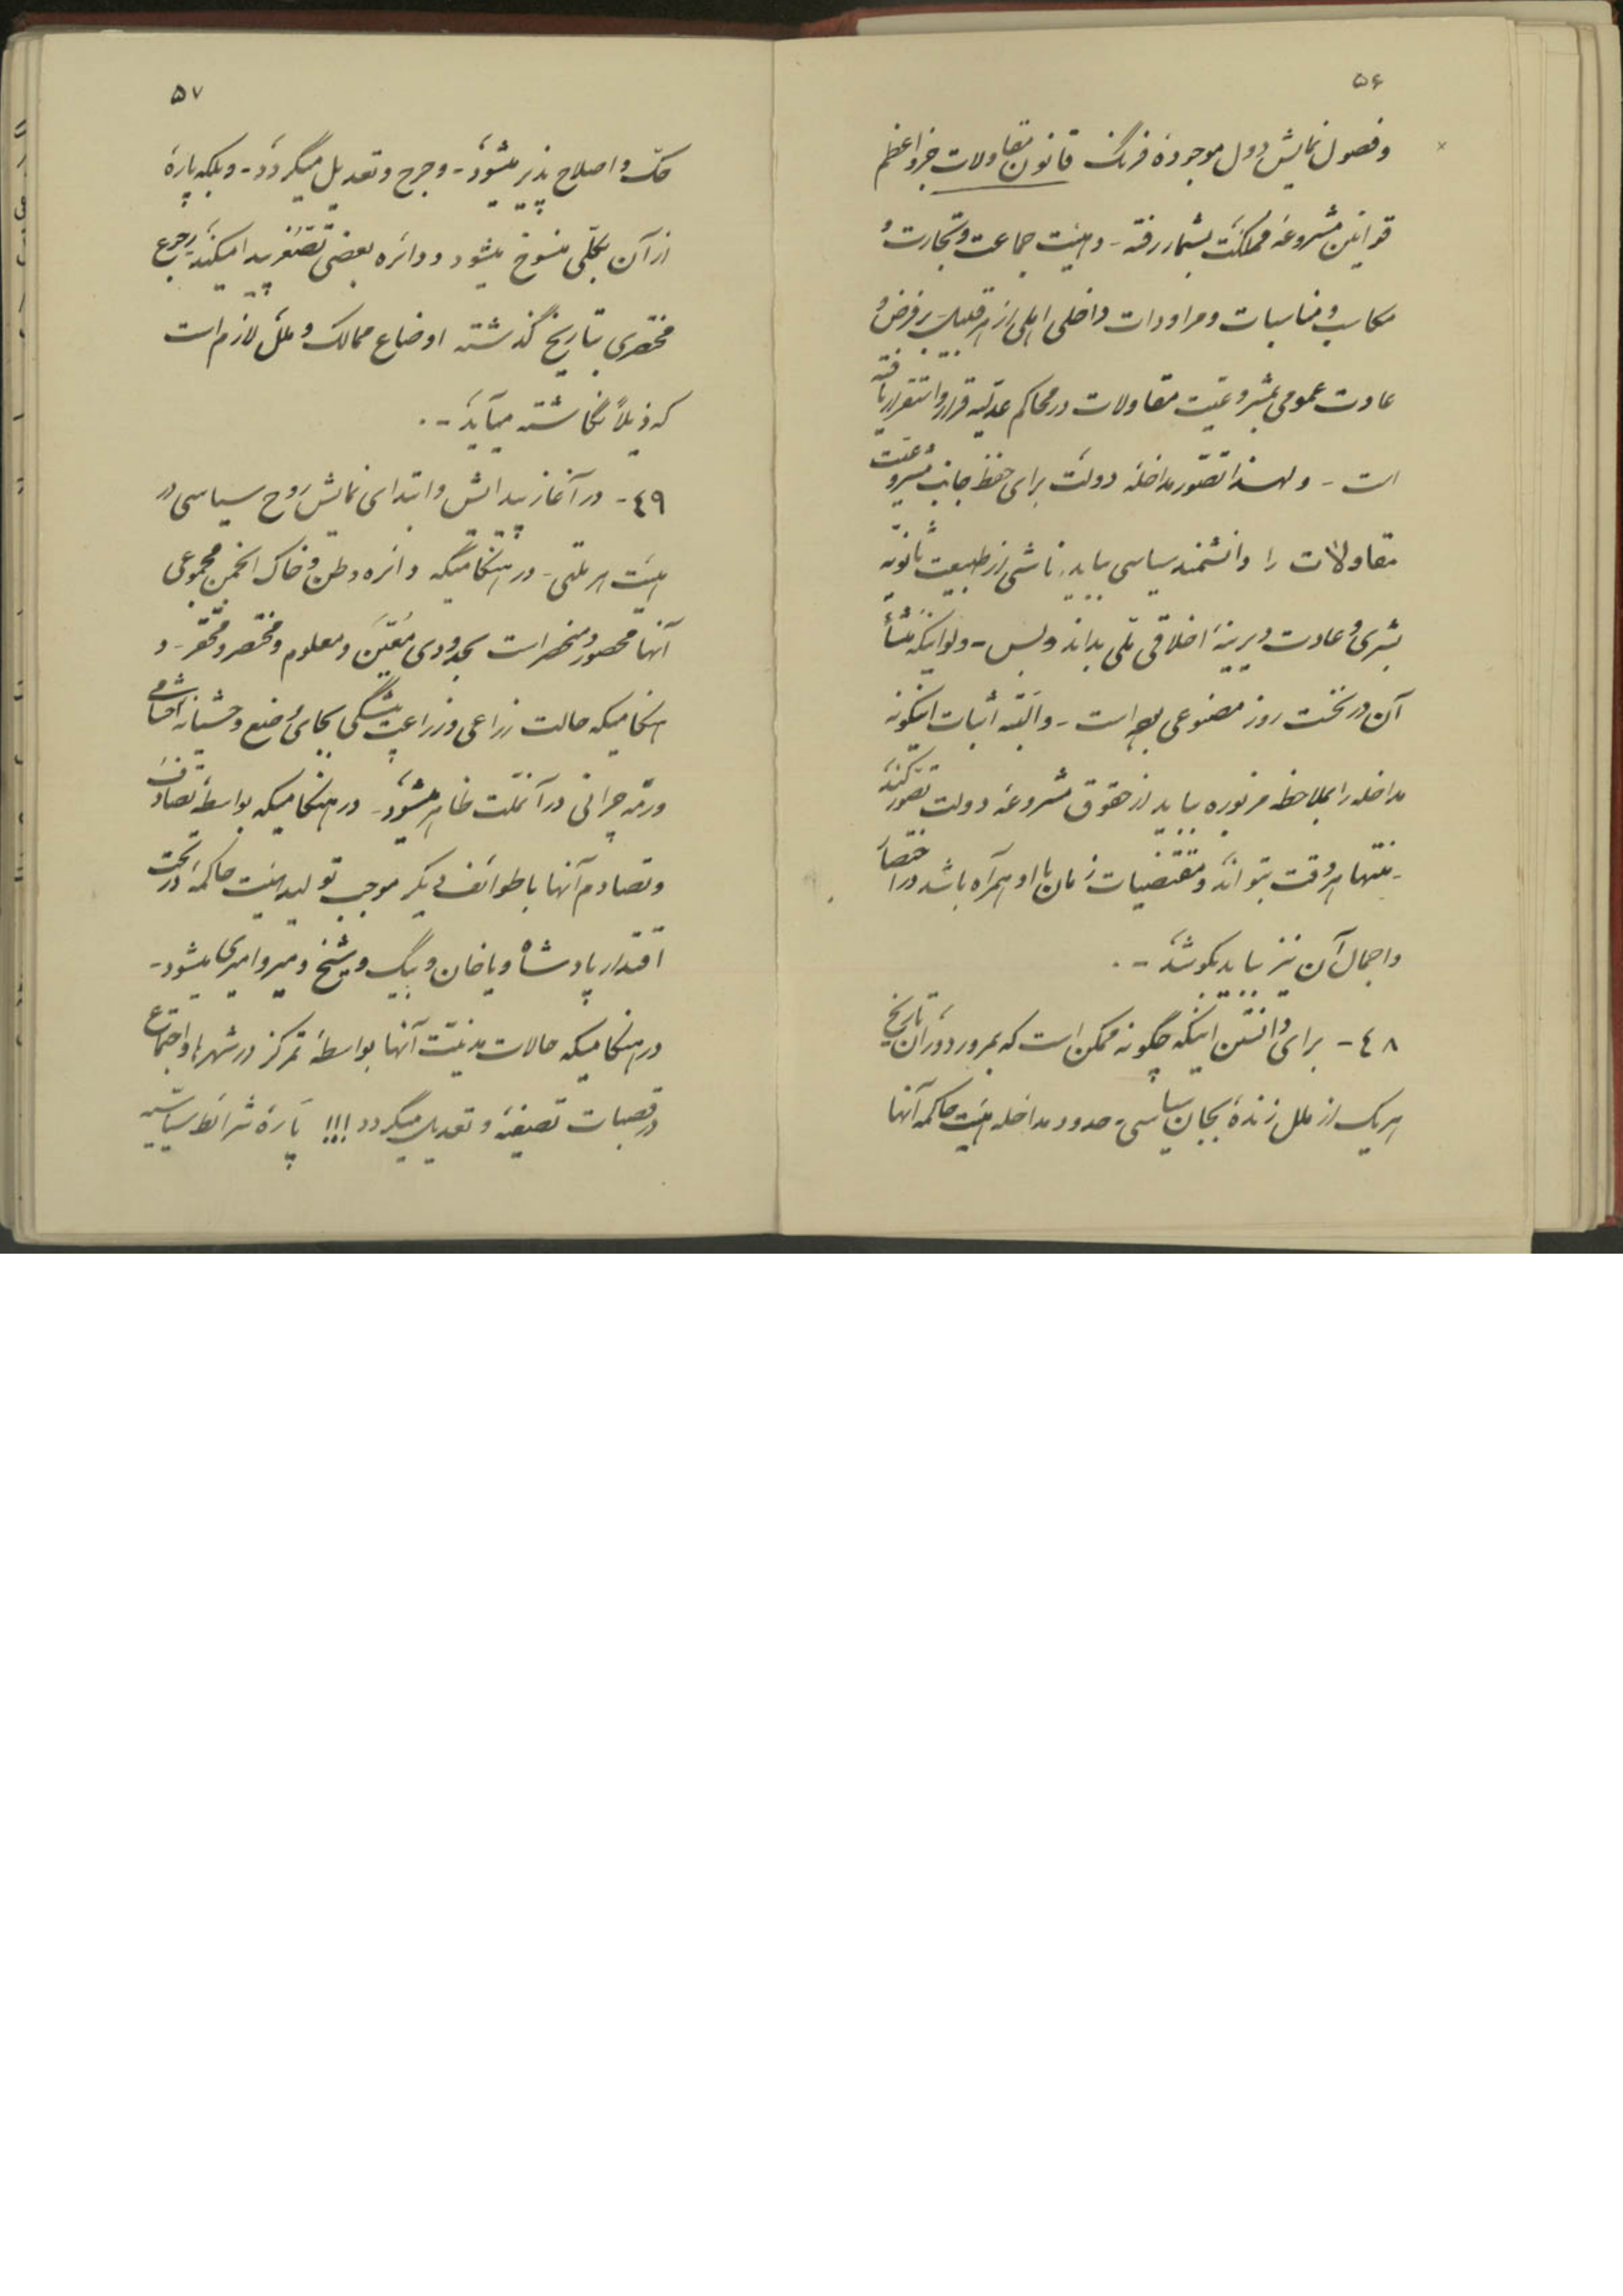 ۵۶
وفصول نمایش دول موجودهٔ فرنگ قانون مقاولات جزو اعظم
قوانین مشروعهٔ مملکت بشمار رفته - و هیئت جماعت و تجارت و
مکاسب و مناسبات و مراودات داخلی اهلی از هر قبیل بر فرض و
عادت عمومی بمشروعیت مقاولات در محاکم عدلیه قرار و استقرار یافته
است - ولهذا تصور مداخلهٔ دولت برای حفظ جانب مشروعیت
مقاولات را دانشمند سیاسی باید ناشی از طبیعت ثانویهٔ
بشری و عادت دیرینهٔ اخلاقی ملی بداند و بس - ولو اینکه منشأ
آن در نخست روز مصنوعی بوده است - و البته اثبات اینگونه
مداخله را بملاحظهٔ مزبوره باید از حقوق مشروعهٔ دولت تصور کنند
- منتها هر وقت بتواند و مقتضیات زمان با او همراه باشد در اختصار
و اجمال آن نیز باید بکوشد -.
٤٨ - برای دانستن اینکه چگونه ممکن است که بمرور دوران تاریخ
هر یک از ملل زندهٔ بجان سیاسی - حدود مداخلهٔ هیئت حاکمهٔ آنها
۵۷
حک و اصلاح پذیر میشود - و جرح و تعدیل میگردد - و بلکه پارهٔ
از آن بکلی منسوخ میشود و دائره بعضی تصغیر پیدا میکند رجوع
مختصری بتاریخ گذشته اوضاع ممالک و ملل لازم است
که ذیلاً نگاشته میآید -.
٤٩ - در آغاز پیدایش و ابتدای نمایش روح سیاسی در
هیئت هر ملتی - در هنگامیکه دائره وطن و خاک انجمن مجموعی
آنها محصور و منحصر است بحدودی معین و معلوم و مختصر و محقر - و
هنگامیکه حالت زراعی و زراعت پیشگی بجای وضع وحشیانه احشامی
و رمه چرانی در آنملت ظاهر میشود - در هنگامیکه بواسطهٔ تصادف
و تصادم آنها با طوائف دیگر موجب تولید هیئت حاکمه در تحت
اقتدار پادشاه و یا خان و بیگ و شیخ و میر و امیری میشود -
در هنگامیکه حالات مدنیت آنها بواسطهٔ تمرکز در شهرها و اجتماع
در قصبات تصفیه و تعدیل میگردد !!! پارهٔ شرائط سیاسیه